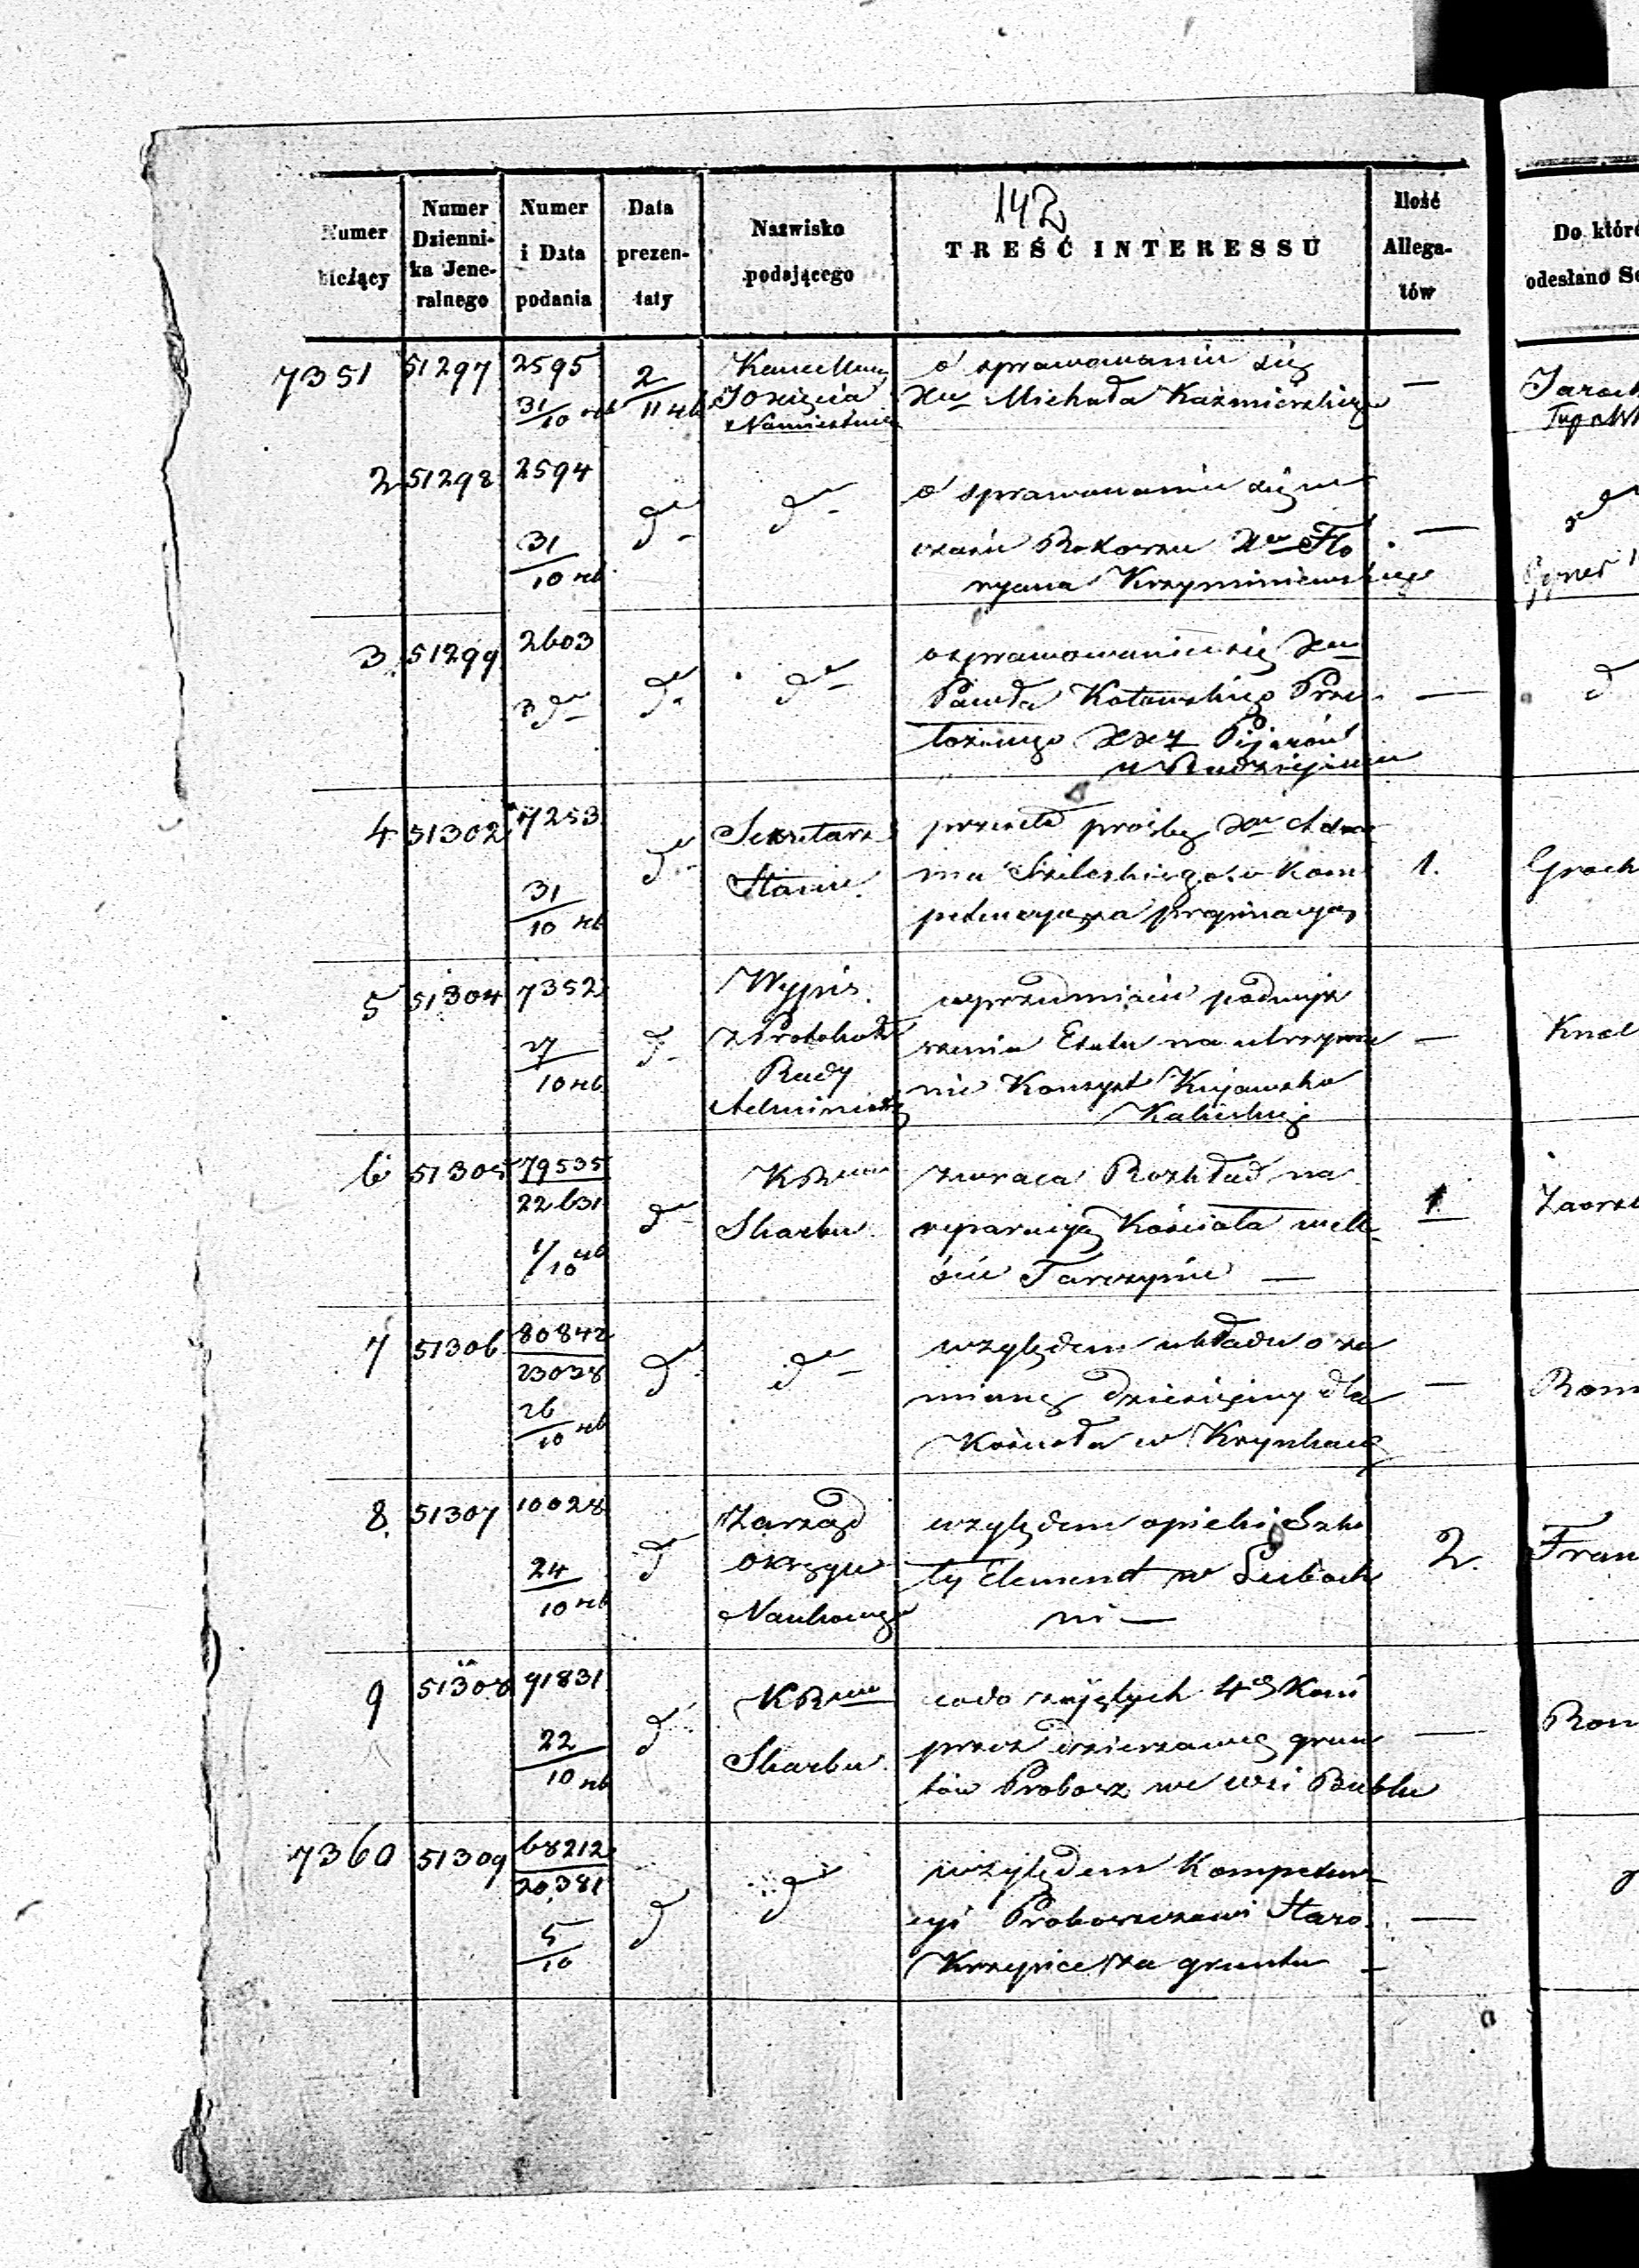 142
Numer bieżący | Numer Dzienni-ka Jene-ralnego | Numer i Data podania | Data prezen-taty | Nazwisko podającego | TREŚĆ INTERESSU | Ilość Allega-tów | Do któr
odesłano Se
7351 | 51297 | 2595 31/10 | 2/11 | Xięcia Namiestnika | o sprawowaniu się
Xa Michała Kaźmierskiego | — | Jaroch
2 | 51298 | 2594 31/10 | do | do | o sprawowaniu się w
czasie Rokoszu Xa Flo
ryana Krzyminiewskiego | —
3 | 51299 | 2603 do | do | do | o sprawowaniu się Xa
Pawła Kotowskiego Prze
łożonego XXy Pijarów
w Radziejowie | — | d
4 | 51302 | 7253 31/10 | do | Sekretarz Stanu | prośbę Xa Ada
ma kom
petencyą za propinacyą | 1. | Groch
5 | 51304 | 7352 27/10 | do | Wypis z Protokołu Rady Administr | w przedmiocie podwyż
szenia Etatu na utrzyma
nie Konsyst Kujawsko
Kaliskiej | — | Knol
6 | 51305 | 79535/22631 1/10 | do | KR Skarbu | zwraca Rozkład na
reparacyą Kościoła w
ście Tarczynie — | 1 | Zaorsk
7 | 51306 | 80842/23028 26/10 | do | do | względem układu o za
mianę dziesięciny dla
Kościoła w Krynkach | — | Rom
8. | 51307 | 10028 24/10 | d | Zarząd Okręgu Naukowego | względem opieki Szko
ły Element w Luboch
ni — | 2. | Fran
9 | 51308 | 91831 22/10 | d | KR Skarbu | co do zajętych
przez dzierżawcę grun
tów Probosz we wsi Bublu | — | Rom
7360 | 51309 | 68212/20381 5/10 | d | d | względem Kompeten
cyi Proboszczowi Staro
Krzepice za grunta | —